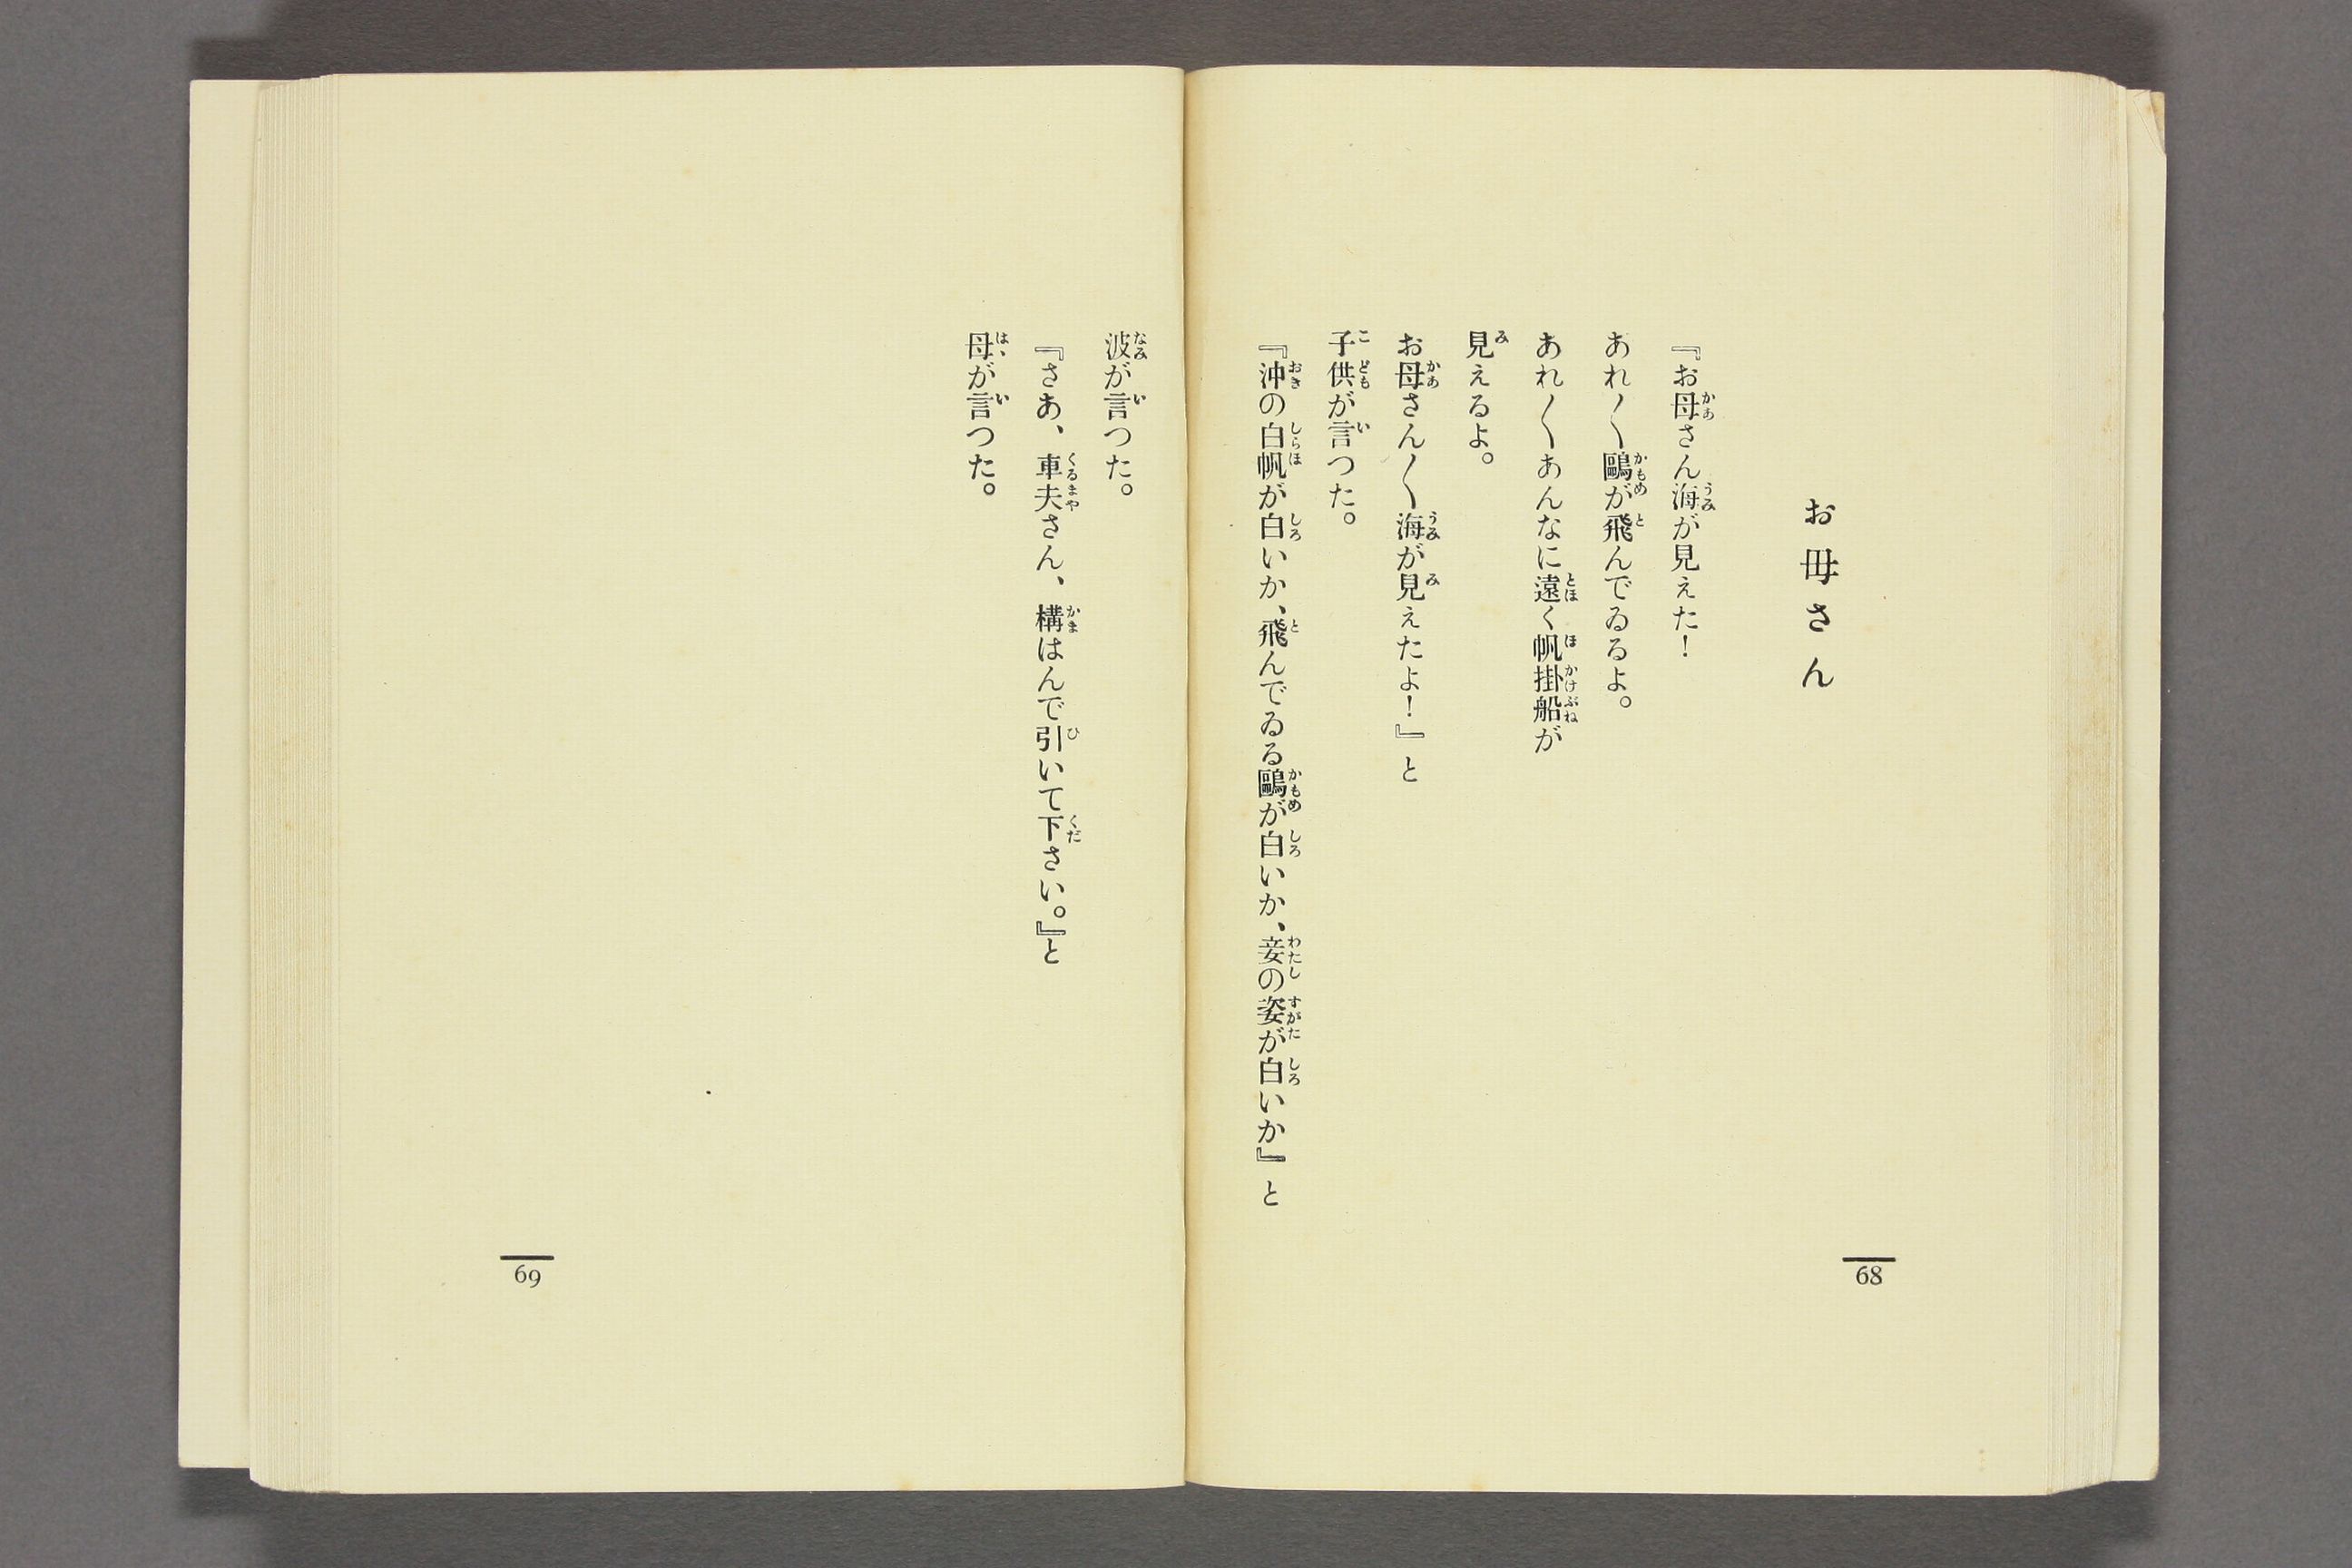 お母さん
『お母さん海が見えた!
あれ〳〵鷗が飛んでゐるよ。
あれ〳〵あんなに遠く帆掛船が
見えるよ。
お母さん〳〵海が見えたよ!』と
子供が言つた。
『沖の白帆が白いか、飛んでゐる鷗が白いか、妾の姿が白いか』と
68
波が言つた。
『さあ、車夫さん、構はんで引いて下さい。』と
母が言つた。
69